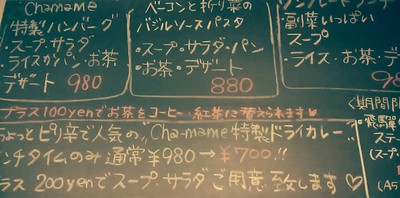 Chamame
特製ハンバーグ
・スープ・サラダ
ライスかパン・お茶
デザート 980
ベーコンと折り菜の
バジルソースパスタ
・スープ・サラダ・パン
・お茶・デザート
880
副菜いっぱい
スープ
・ライス・お茶・デ
98
プラス100yenでお茶をコーヒー・紅茶に替えられます♥
ちょっとピリ辛で人気の〃Cha-mame特製ドライカレー〃
ンチタイムのみ 通常¥980→¥700!!
ラス 200yenでスープ・サラダご用意致します♡
<期間限
飛騨
ステー
(スープ・
(A5